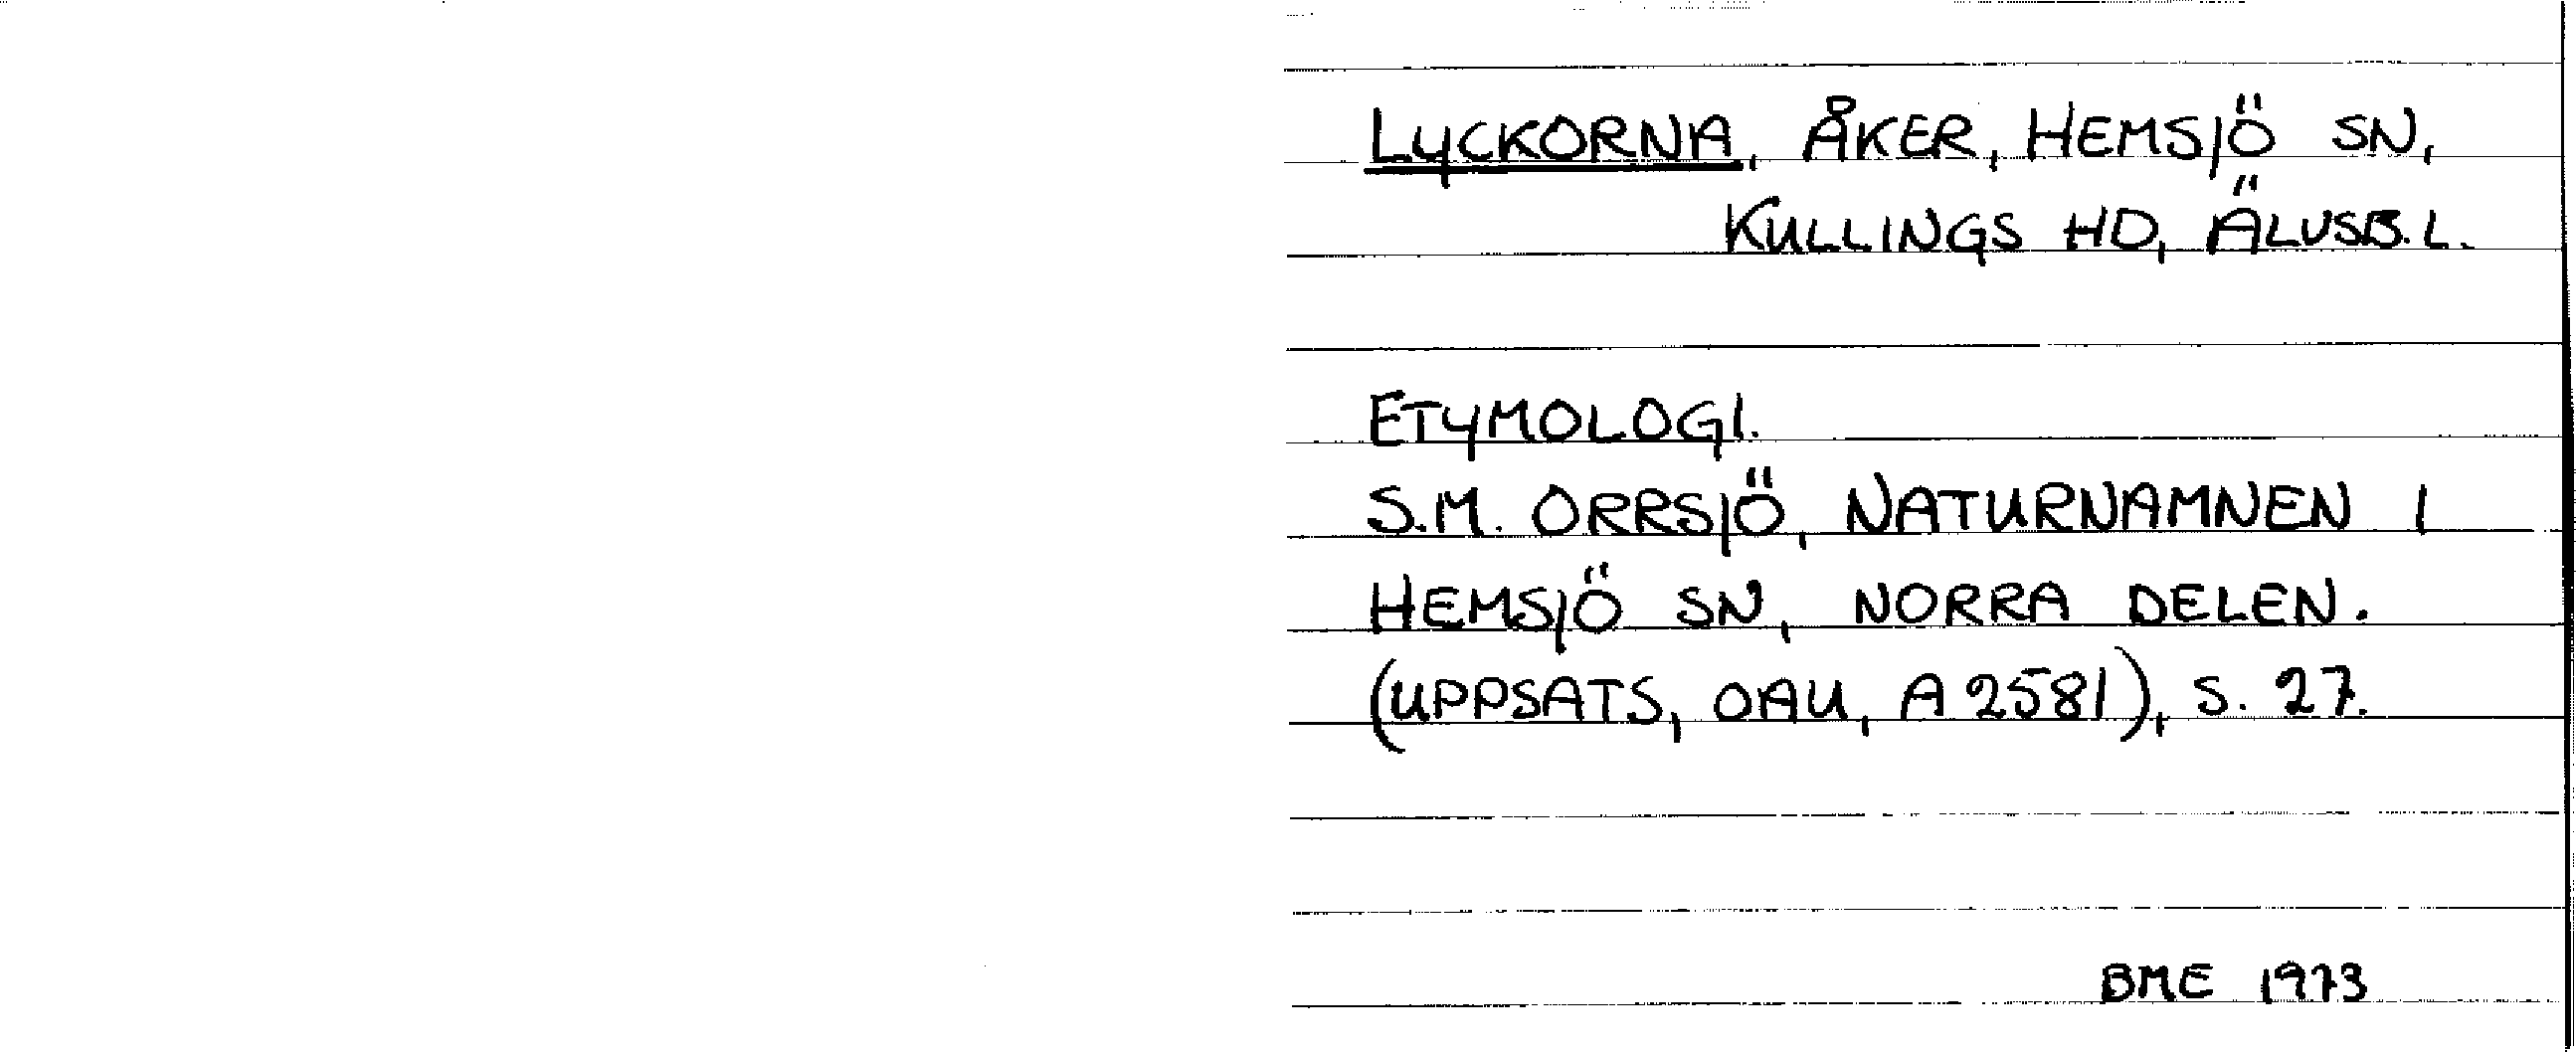 LYCKORNA, ÅKER, HEMSJÖ SN,
KULLINGS HD, ÄLVSB. L.
ETYMOLOGI.
S.M. ORRSJÖ, NATURNAMNEN I
HEMSJÖ SN, NORRA DELEN.
(UPPSATS, OAU, A 2581), S. 27.
BME 1973